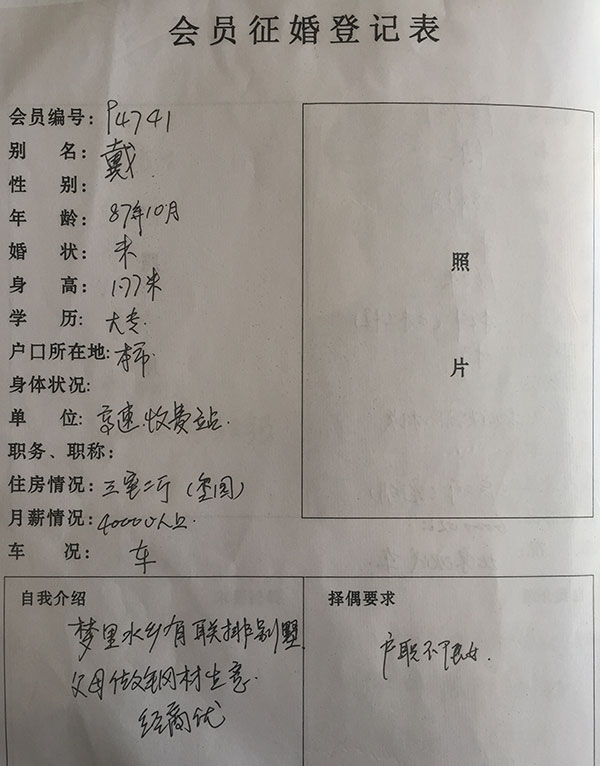 会员征婚登记表
会员编号: P4741
别 名: 戴
性 别:
年 龄: 87年10月
婚 状: 未
身 高: 177米
学 历: 大专.
户口所在地: 本市
身体状况:
单 位: 高速.收费站.
职务、职称:
住房情况: 三室二厅
月薪情况: 40000以上.
车 况: 车
照
片
自我介绍
梦里水乡有联排别墅
父母做钢材生意.
经商优
择偶要求
户职不限